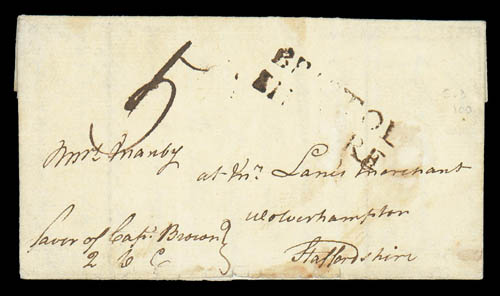 5
BRISTOL
Mrs. Manby
at Mr. Lane's Merchant
Wolverhampton
Staffordshire
favor of Capt. Brown
2 C